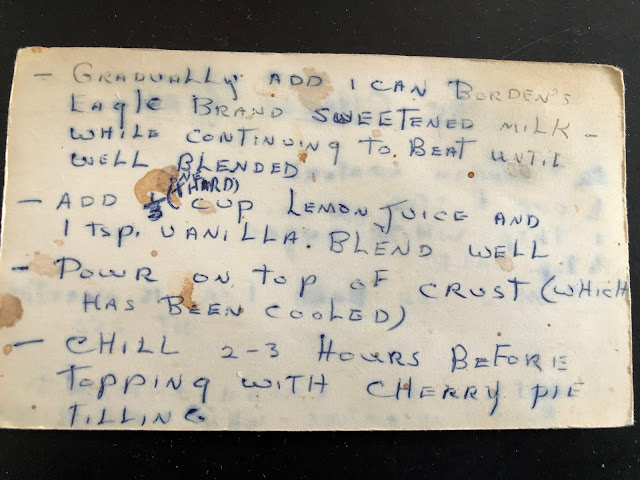 - GRADUALLY ADD 1 CAN BORDEN'S
EAGLE BRAND SWEETENED MILK -
WHILE CONTINUING TO BEAT UNTIL
WELL BLENDED
- ADD 1/3 (THARD) CUP LEMON JUICE AND
1 tsp. VANILLA. BLEND WELL
- POWR ON TOP OF CRUST (WHICH
HAS BEEN COOLED)
- CHILL 2-3 HOURS BEFORE
TOPPING WITH CHERRY PIE
TILLING